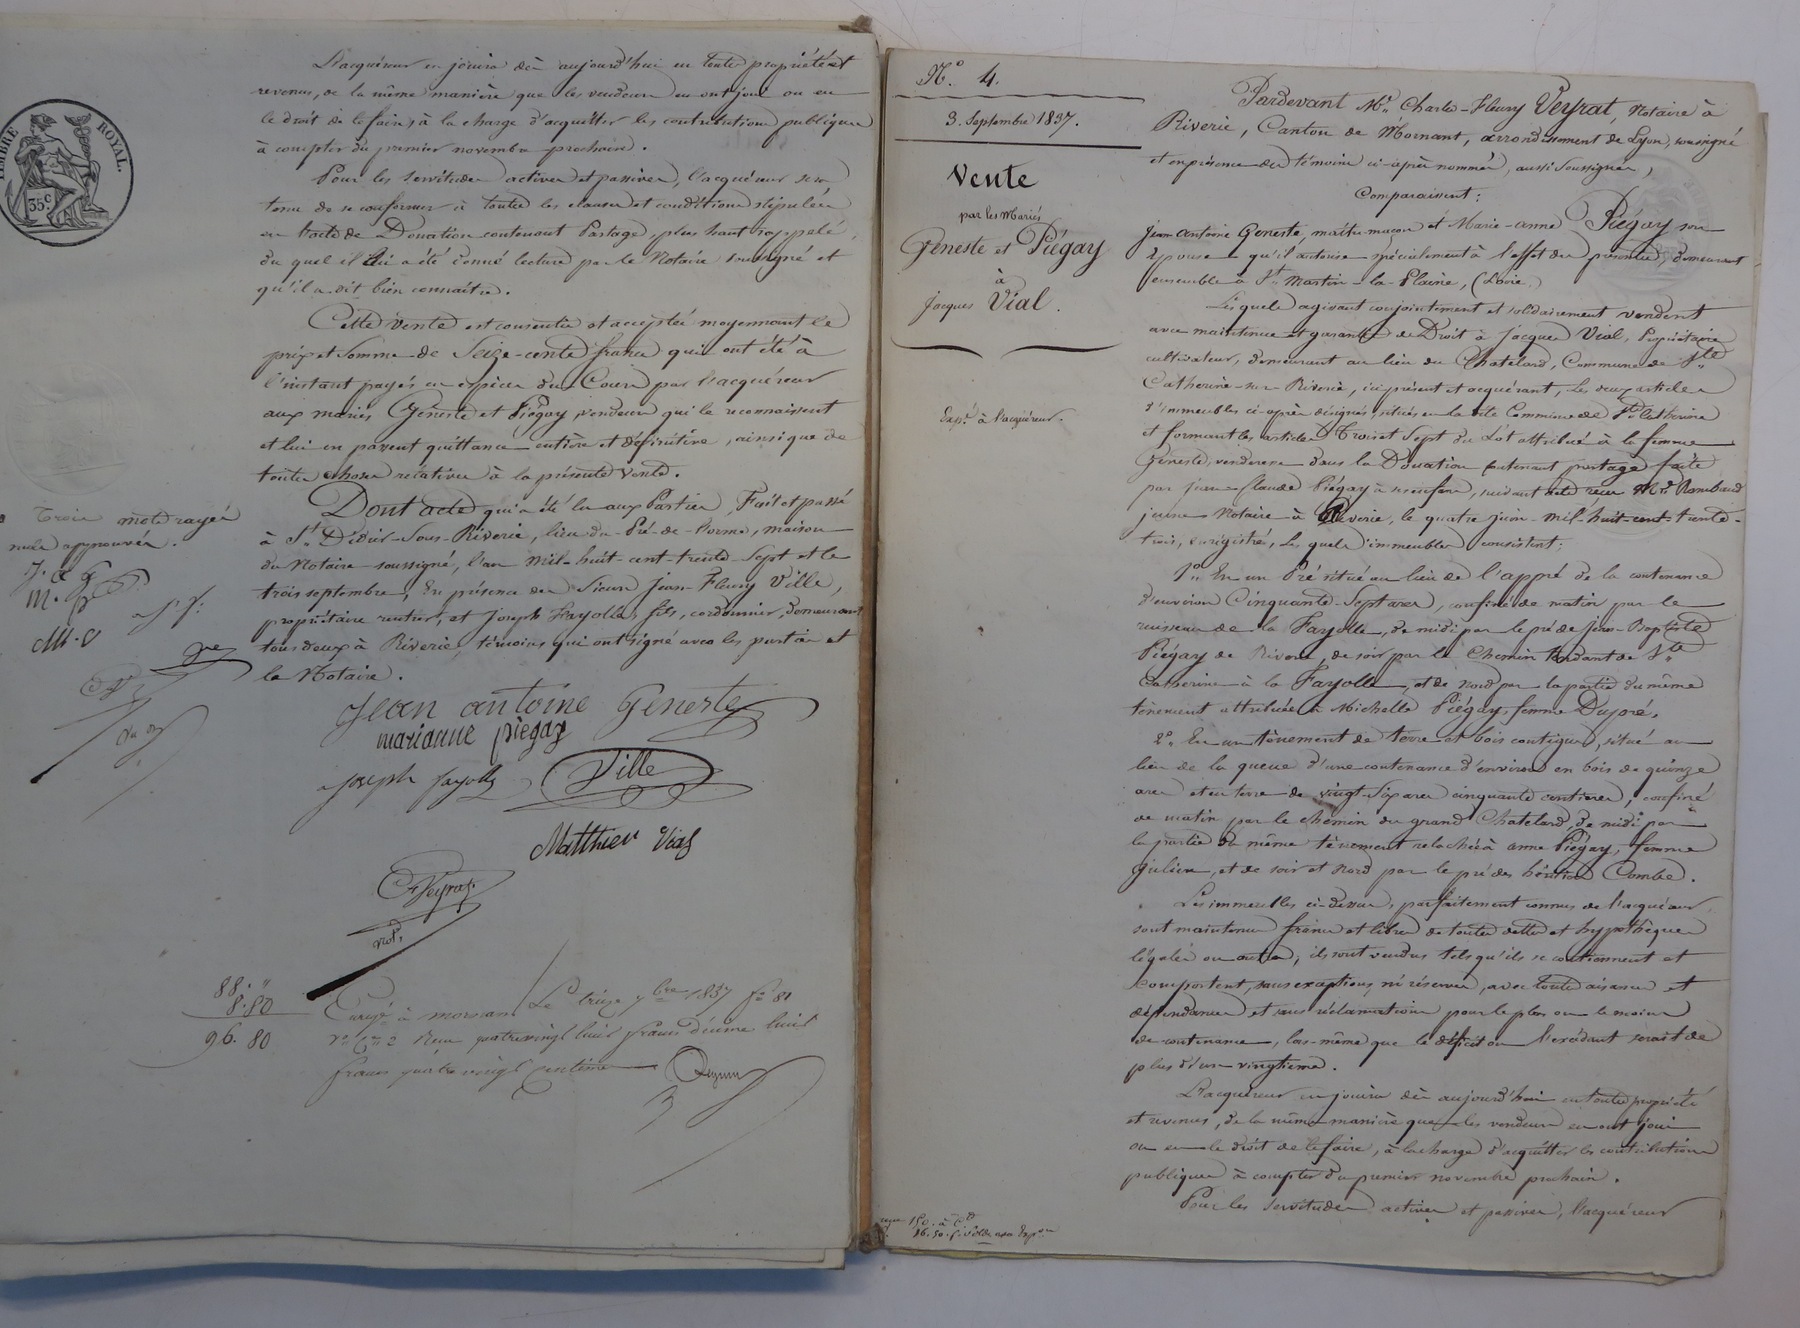 TIMBRE ROYAL.
35.c
L'acquéreur en jouira dès aujourd'hui en toute propriété et
revenus, de la même manière que les vendeurs en ont joui ou eu
le droit de le faire, à la charge d'acquitter les contributions publiques
à compter du premier novembre prochain.
Pour les servitudes actives et passives, l'acquéreur sera
tenu de se conformer à toutes les clauses et conditions stipulées
en l'acte de Donation contenant Partage, plus haut rappelé,
du quel il lui a été donné lecture par le Notaire soussigné et
qu'il a dit bien connaître.
Cette vente est consentie et acceptée moyennant le
prix et somme de Seize-cents francs qui ont été à
l'instant payés en espèces du Cours par l'acquéreur
aux mariés Geneste et Piégay, vendeurs qui le reconnaissent
et lui en passent quittance entière et définitive, ainsi que de
toutes choses relatives à la présente vente.
Dont acte qui a été lu aux Parties, Fait et passé
à St. Didier-Sous-Riverie, lieu du Pré-de-l'orme, maison
du Notaire soussigné, l'an mil-huit-cent-trente-Sept et le
trois septembre, En présence des Sieurs Jean-Fleury Ville,
propriétaire rentier, et Joseph Fayolle fils, cordonnier, demeurant
tous deux à Riverie, témoins qui ont signé avec les parties et
le Notaire.
Trois mots rayés
nuls approuvés.
J. A G
M. P
M. V
Jean antoine Geneste
marianne piegay
joseph fayolle Ville
Matthieu Vial
Veyrat.
not.
88. "
8. 80
96. 80
Enregé à mornant Le treize 7bre 1837 fo 81
Vo Ce 2 Reçu quatrevingt huit francs décime huit
francs quatre vingt centimes
No. 4.
3. Septembre 1837.
Vente
par les Mariés
Geneste et Piégay
à
Jacques Vial.
Expé. à l'acquéreur.
Pardevant Me. Charles-Fleury Veyrat, Notaire à
Riverie, Canton de Mornant, arrondissement de Lyon, soussigné
et en présence des témoins ci-après nommés, aussi soussignés,
Comparaissent:
Jean Antoine Geneste, maître-maçon et Marie-anne Piégay son
Epouse qu'il autorise spécialement à l'effet des présentes, demeurant
ensemble à St. Martin-la-Plaine, (Loire.)
Lesquels agissant conjointement et solidairement vendent
avec maintenue et garantie de Droit à Jacques Vial, Propriétaire
cultivateur, demeurant au lieu du Chatelard, Commune de Ste
Catherine-sur-Riverie, ici présent et acquérant, Les deux articles
d'immeubles ci-après désignés, situés en la dite Commune de Ste Catherine
et formant les articles Trois et Sept du Lot attribué à la femme
Geneste, venderesse dans la Donation contenant partage faite
par jean-Claude Piégay à ses enfants, suivant acte reçu Me. Rambaud
jeune Notaire à Riverie, le quatre juin mil-huit-cent-trente-
trois, enregistré, Les quels immeubles consistent:
1o. En un Pré situé au lieu de l'appré de la contenance
d'environ Cinquante-Sept ares, confiné de matin par le
ruisseau de la Fayolle, de midi par le pré de Jean-Baptiste
Piégay de Riverie, de soir par le Chemin tendant de Ste
Catherine à la Fayolle, et de nord par la partie du même
tènement attribuée à Michelle Piégay, femme Dupré.
2o. En un tènement de terre et bois contigus, situé au
lieu de la queue d'une contenance d'environ en bois de quinze
ares et en terre de vingt-Six ares cinquante centiares, confiné
de matin par le chemin du grand Chatelard, de midi par
la partie du même tènement relachée à anne Piégay, femme
Julien, et de soir et Nord par le pré des héritiers Combe.
Les immeubles ci-dessus, parfaitement connus de l'acquéreur
sont maintenus francs et libres de toutes dettes et hypothèques
légales ou autres, ils sont vendus tels qu'ils se contiennent et
comportent, sans exceptions, ni réserves, avec toutes aisances et
dépendances et sans réclamation pour le plus ou le moins
de contenance, lors-même que le déficit ou l'excédant serait de
plus d'un vingtième.
L'acquéreur en jouira dès aujourd'hui en toute propriété
et revenus, de la même manière que les vendeurs en ont joui
ou eu le droit de le faire, à la charge d'acquitter les contributions
publiques à compter du premier novembre prochain.
Pour les servitudes actives et passives, l'acquéreur
150. à
16. 50. p. solde